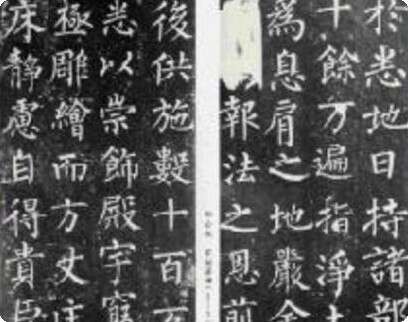 於悉地日持諸部
十餘万遍指淨土
為息肩之地嚴金
報法之恩前
後供施數十百万
悉以崇飾殿宇窮
極雕繪而方丈匡
床靜慮自得貴臣